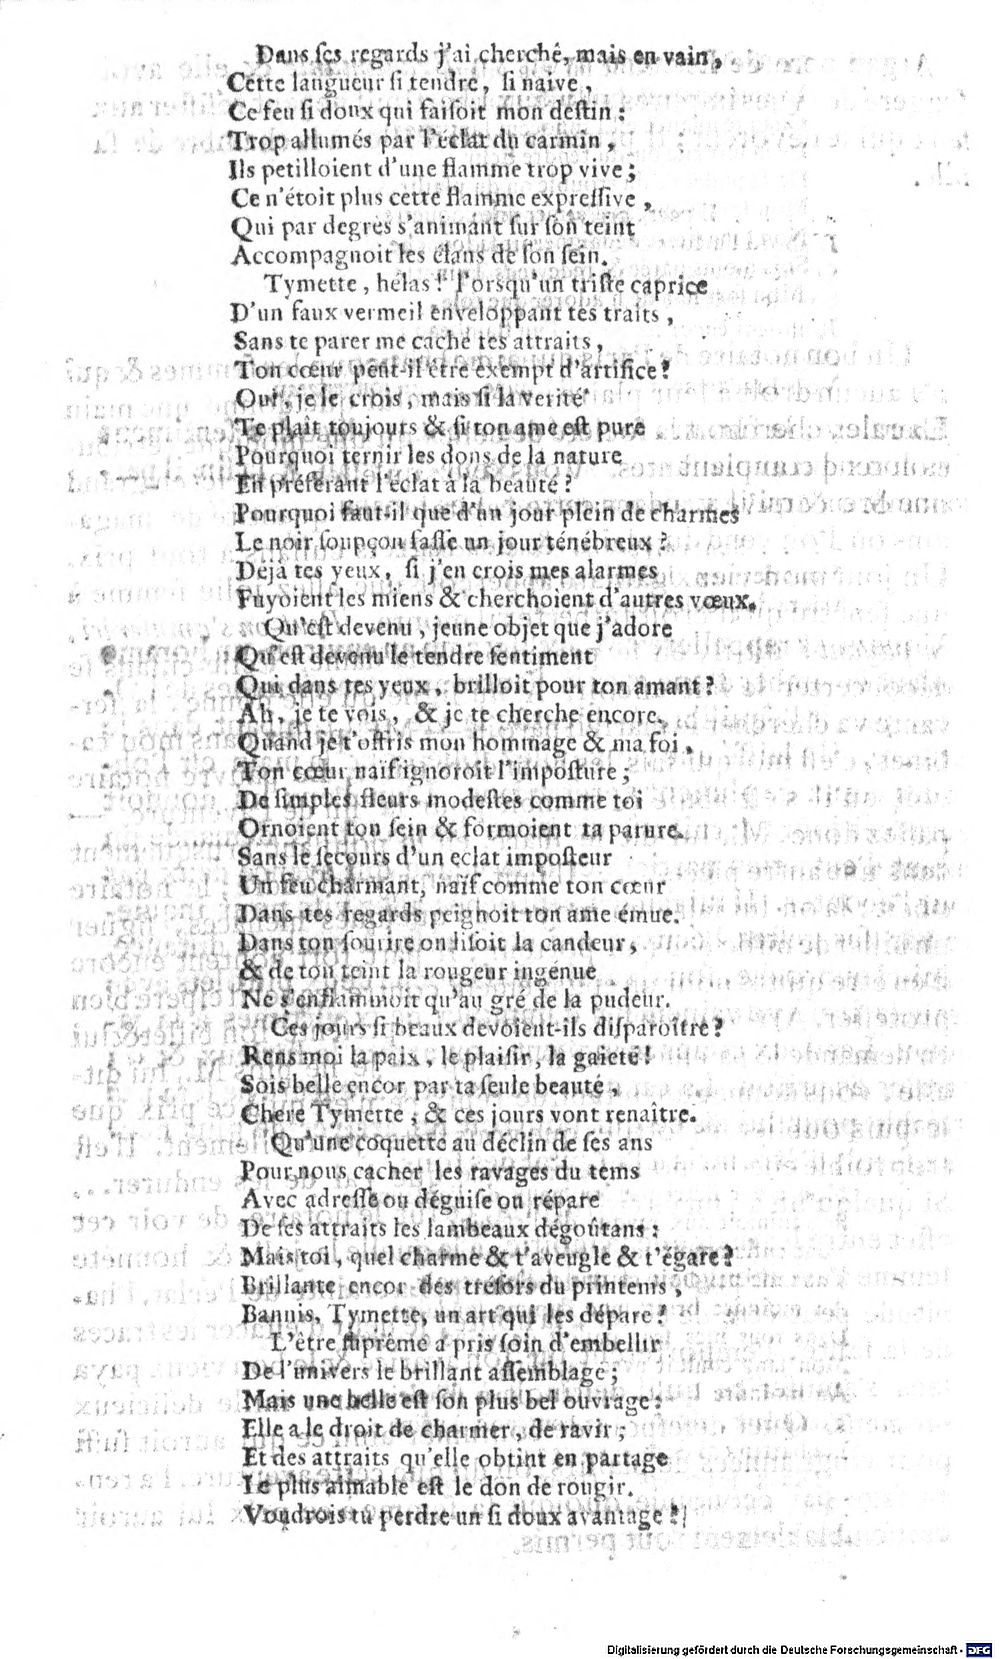 Dans ſes regards j'ai cherché, mais en vain,
Cette langueur ſi tendre, ſi naive,
Ce feu ſi doux qui faiſoit mon deſtin:
Trop allumés par l'eclat du carmin,
Ils petilloient d'une flamme trop vive;
Ce n'étoit plus cette flamme expreſſive,
Qui par degres s'animant ſur ſon teint
Accompagnoit les élans de ſon ſein.
Tymette, hélas! lorsqu'un triſte caprice
D'un faux vermeil enveloppant tes traits,
Sans te parer me cache tes attraits,
Ton cœur peut-il être exempt d'artifice?
Oui, je le crois, mais ſi la verité
Te plaît toujours & ſi ton ame eſt pure
Pourquoi ternir les dons de la nature
En préférant l'éclat à la beauté?
Pourquoi faut-il que d'un jour plein de charmes
Le noir ſoupçon faſſe un jour ténébreux?
Déja tes yeux, ſi j'en crois mes alarmes
Fuyoient les miens & cherchoient d'autres vœux.
Qu'eſt devenu, jeune objet que j'adore
Qu'eſt devenu le tendre ſentiment
Qui dans tes yeux, brilloit pour ton amant?
Ah, je te vois, & je te cherche encore.
Quand je t'offris mon hommage & ma foi,
Ton cœur naïf ignoroit l'impoſture;
De ſimples fleurs modeſtes comme toi
Ornoient ton ſein & formoient ta parure.
Sans le ſecours d'un eclat impoſteur
Un feu charmant, naïf comme ton cœur
Dans tes regards peignoit ton ame émue.
Dans ton ſourire on liſoit la candeur,
& de ton teint la rougeur ingénue
Ne s'enflammoit qu'au gré de la pudeur.
Ces jours ſi beaux devoient-ils diſparoître?
Rens moi la paix, le plaiſir, la gaieté!
Sois belle encor par ta ſeule beauté,
Chere Tymette, & ces jours vont renaître.
Qu'une coquette au déclin de ſes ans
Pour nous cacher les ravages du tems
Avec adreſſe ou déguiſe ou répare
De ſes attraits les lambeaux dégoûtans:
Mais toi, quel charme & t'aveugle & t'égare?
Brillante encor des tréſors du printems,
Bannis, Tymette, un art qui les dépare!
L'être ſuprême a pris ſoin d'embellir
De l'univers le brillant aſſemblage;
Mais une belle eſt ſon plus bel ouvrage:
Elle a le droit de charmer, de ravir;
Et des attraits qu'elle obtint en partage
Le plus aimable eſt le don de rougir.
Voudrois tu perdre un ſi doux avantage?
Digitalisierung gefördert durch die Deutsche Forschungsgemeinschaft - DFG